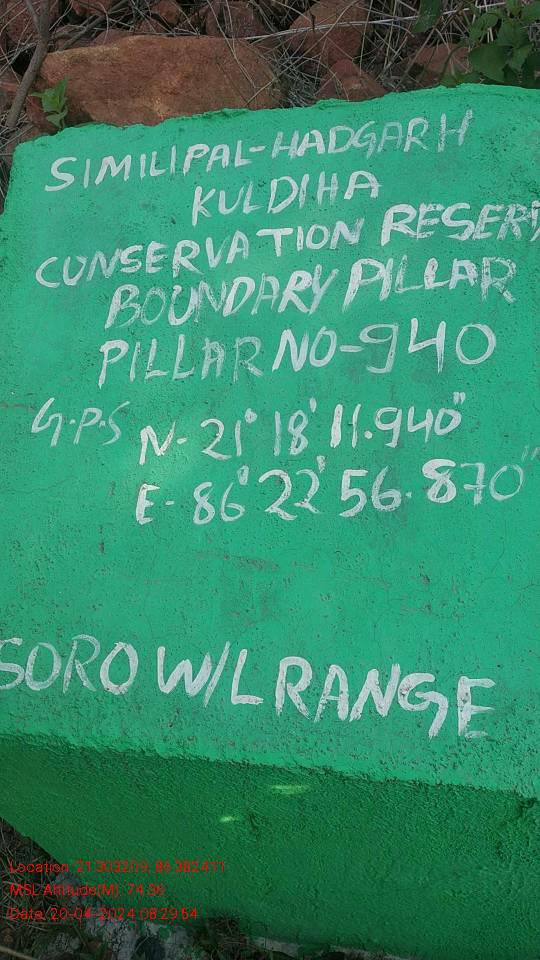 SIMILIPAL-HADGARH
KULDIHA
CONSERVATION RESERV
BOUNDARY PILLAR
PILLAR NO-940
G.P.S N- 21° 18' 11.940"
E- 86° 22' 56.870"
SORO W/L RANGE
Location: 21.303209, 86.382411
MSL Altitude(M): 74.36
Date: 20-04-2024 08:29:54